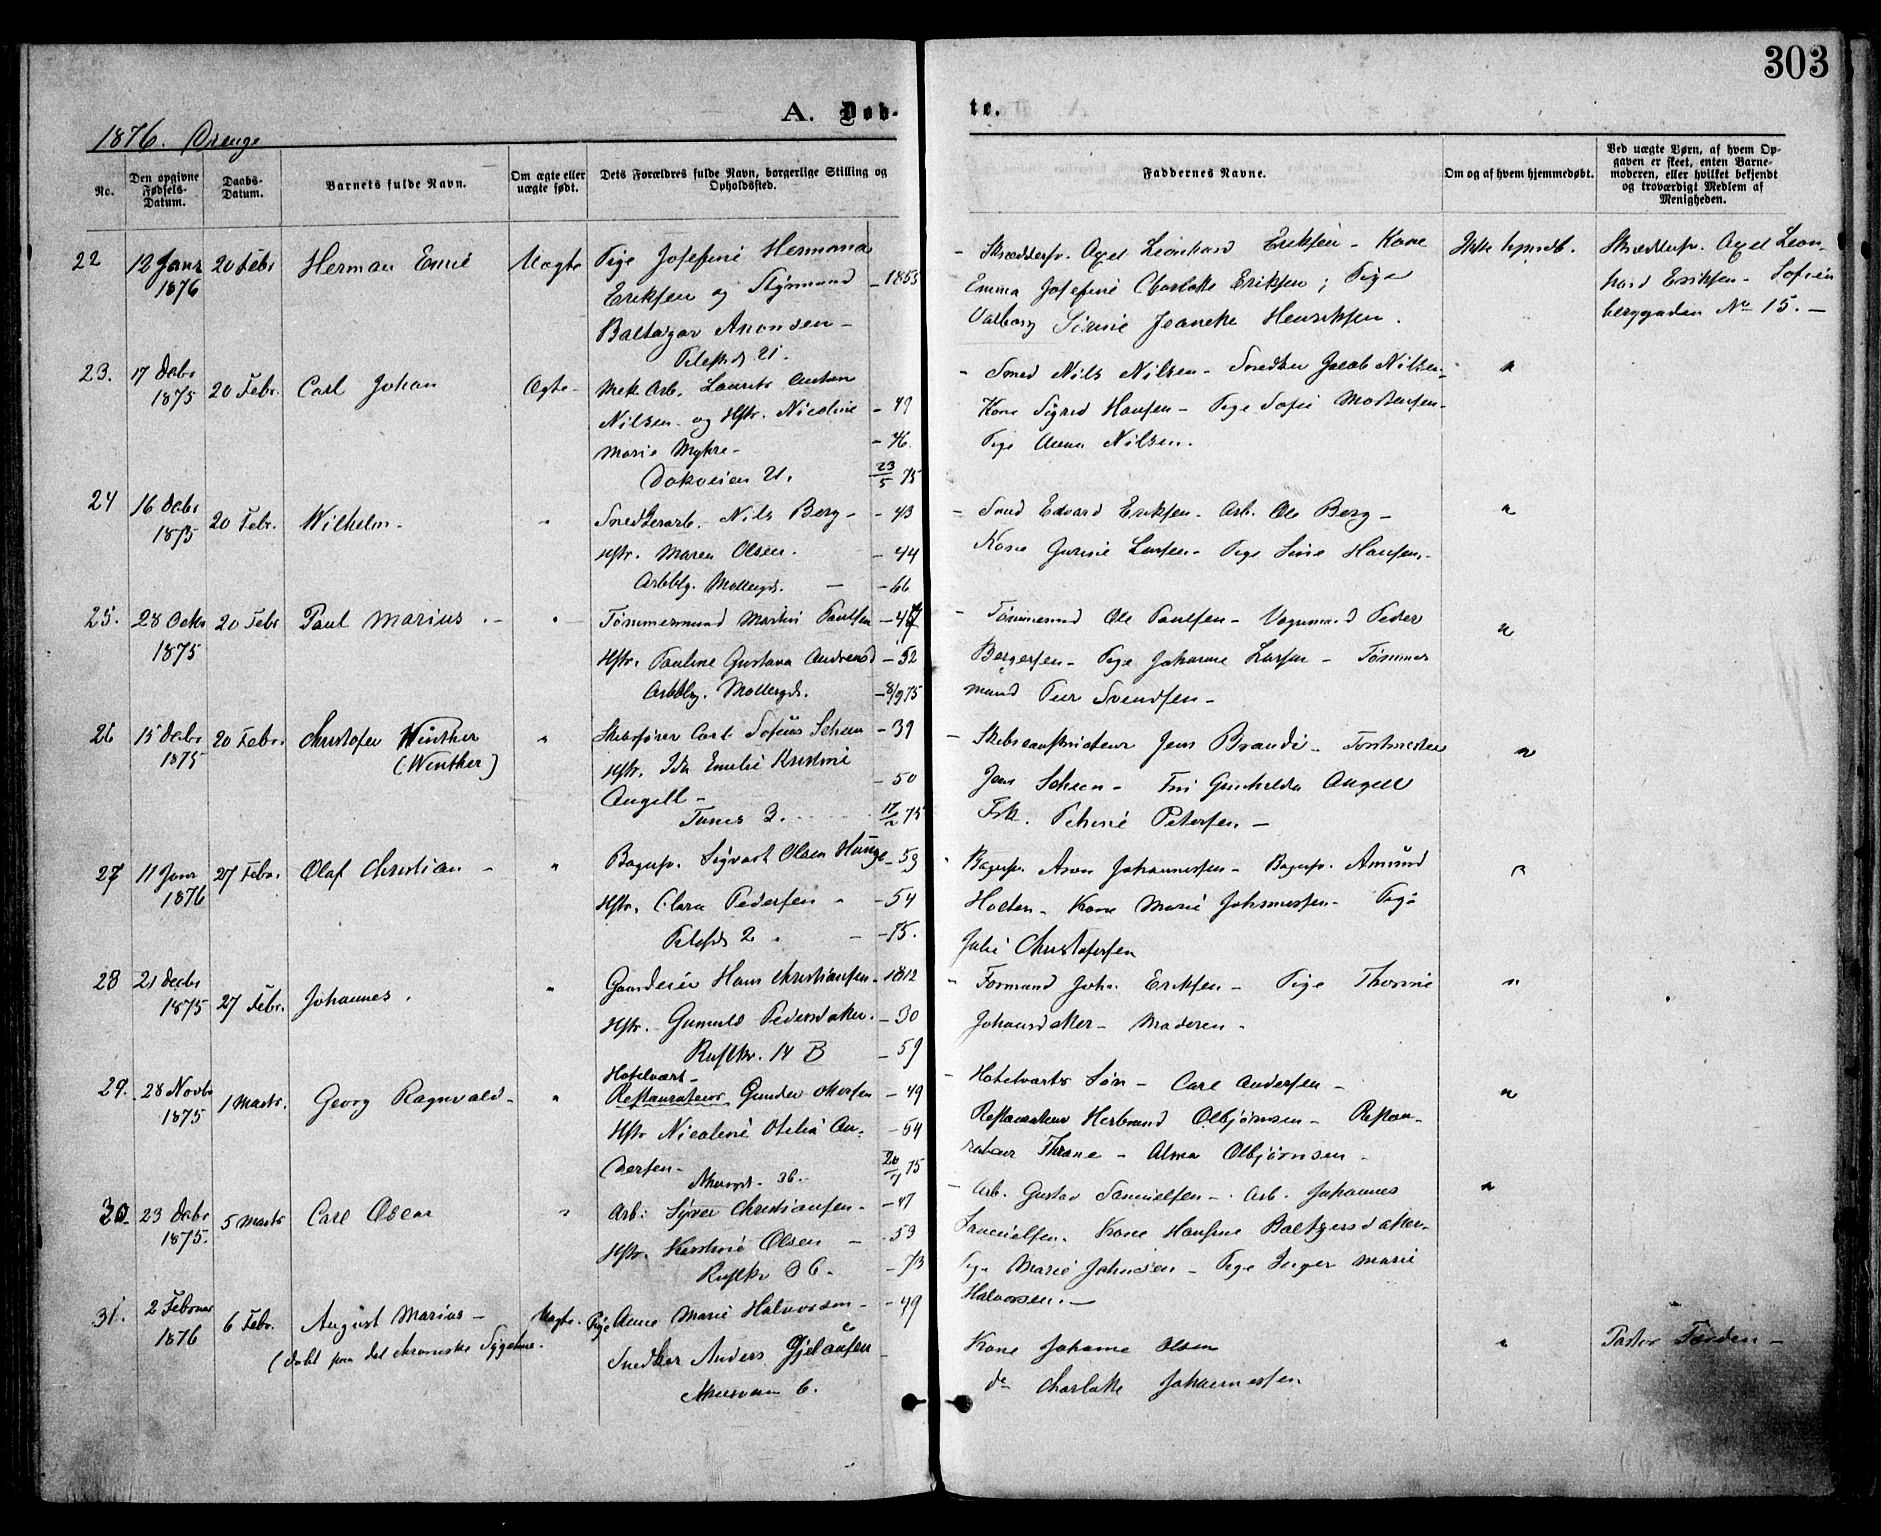 303
A. Døb-
te.
1876. Drenge
No.
Den opgivne Fødsels-Datum.
Daabs-Datum.
Barnets fulde Navn.
Om ægte eller uægte født.
Dets Forældres fulde Navn, borgerlige Stilling og Opholdssted.
Faddernes Navne.
Om og af hvem hjemmedøbt.
Ved uægte Børn, af hvem Opgaven er skeet, enten Barnemoderen, eller hvilket bekjendt og troværdigt Medlem af Menigheden.
22 12 Janr 1876 20 Febr Herman Emil Uægte
Pige Josefine Hermana
Eriksen og Sigmund - 1853
Baltazar Aronsen -
21.
- Skræddersv. Axel Leonhard Eriksen - Kone
Emma Josefine Charlotte Eriksen; Pige
Valborg Sirine Jeaneke Henriksen.
Ikke hjmdt.
Skræddersv. Axel Leon-
hard Eriksen - Sofien
berggaden No 15. -
23. 17 Decbr 1875 20 Febr. Carl Johan Ægte
Mek. Arb. Laurits Anton
Nilsen og Hstr. Nicoline - 49
Marie Myhre - - 46.
Dokveien 21. 23/5 75
- Smed Nils Nilsen - Snedker Jacob Nilsen -
Kone Sigrid Hansen - Pige Sofie Mortensen -
Pige Anna Nilsen.
"
24 16 Decbr 1875 20 Febr. Wilhelm - "
Snedkerarb. Nils Berg - - 43
Hstr. Maren Olsen. - 44
Arbblg. Mollergd. - - 66
- Smed Edvard Eriksen - Arb. Ole Berg -
Kone Gurine Larsen - Pige Sine Hansen -
"
25. 28 Octb 1875 20 Febr Paul Marius - "
Tømmermand Martin Paulsen - 47
Hstr. Pauline Gustava Andreasd - 52
Arbblg. Mollergd. - 8/9 75
- Tømmermand Ole Paulsen - Vognmand Peder
Bergersen - Pige Johanne Larsen - Tømmer
mand Peer Svendsen -
"
26 15 Decbr 1875 20 Febr. Christofer Winther
(Winther) "
Skibsfører Carl Sofus Scheen - 39
Hstr. Ida Emilie Kristine - 50
Angell -
3. 17/2 75
- Jens Brandi - Forstmester
Jens Scheen - Gunhilda Angell
Frk. Petrine Petersen -
"
27 11 Janr 1876 27 Febr. Olaf Christian - "
Bagersv. Sigvart Olsen Hauge - 53
Hstr. Clara Pedersen - - 54
2. - - 75.
Bagersv. Aron Johannessen - Bagersv. Amund
Holten - Kone Marie Johannessen - Pige
Julie Christofersen
"
28 21 Decbr 1875 27 Febr. Johannes. "
Gaardeier Hans Christiansen - 1812
Hstr. Gunuld Pedersdatter. - 30
Rustkr. 14 B - 59
- Formand Johs. Eriksen - Pige Thorine
Johansdatter - Moderen -
"
29. 28 Novbr 1875 1 Marts. Georg Ragnvald - "
Hotelvært -
Restauratør Gunder Mortsen - 49
Hstr Nicoline Otilie An- - 54
dersen - 20/1 75
36.
- Hotelværts Søn - Carl Andersen -
Restauratør Herbrand Olbjørnsen - Restau-
ratør Thrane - Alma Olbjørnsen -
"
30. 23 Decbr 1875. 5 Marts Carl Oscar "
Arb: Syver Christiansen - - 47
Hstr. Kirstine Olsen - - 53
Rustkr 36. - 73
- Arb. Gustav Samuelsen - Arb. Johannes
Samuelsen. Kone Hansine Baltzersdatter -
Pige Marie Johnsen - Pige Inger Marie
Halvorsen. -
"
31. 2 Februar 1876 6 Febr. August Marius - Uægte.
(døbt paa det chroniske Sygehus.
Pige Anne Marie Halvorsen - - 49
Snedker Anders Gjelåusen -
Akersveien 6.
Kone Johanne Olsen
do Charlotte Johannessen
"
Pastor Færden -